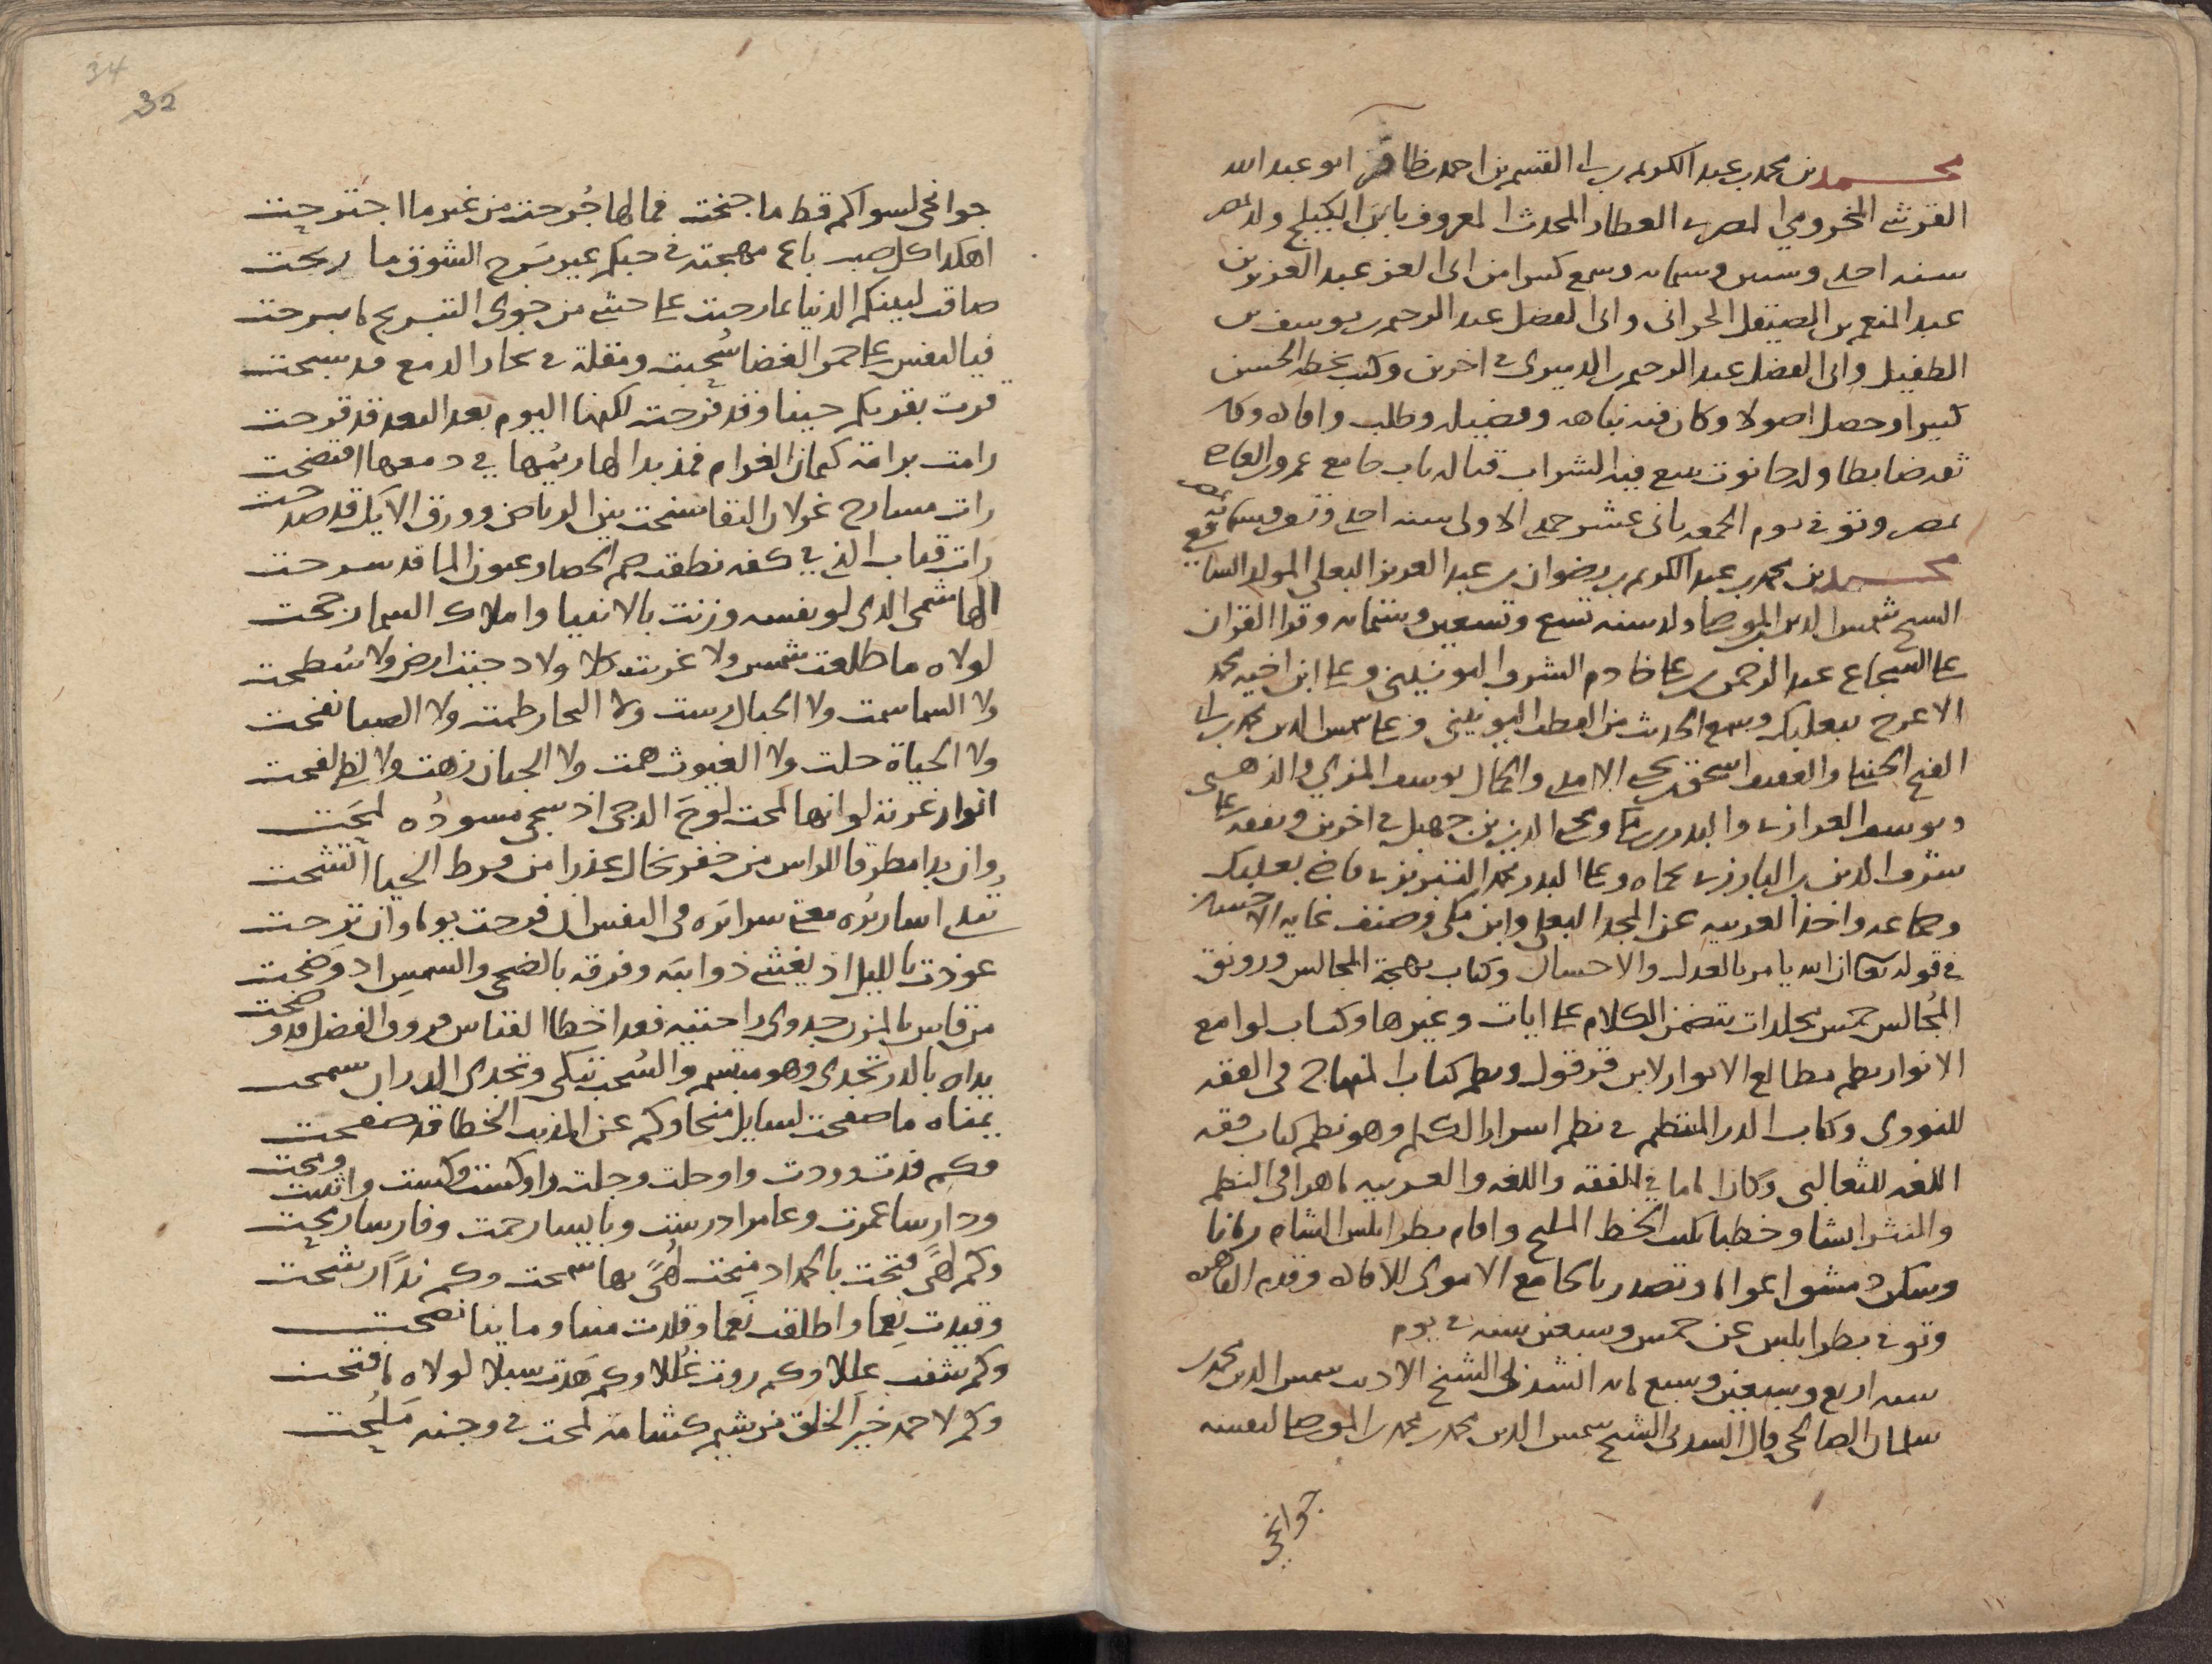 محمد بن محمد بن عبد الكريم بن ابى القسم بن احمد بن ظافر ابو عبد الله
القرشى المخزومى المصرى العطار المحدث المعروف بابن الكبيلج ولد بمصر
سنه احدى وستين وستمايه وسمع كثيرا من ابى العز عبد العزيز بن
عبد المنعم بن الصيقل الحرانى وابى الفضل عبد الرحيم بن يوسف بن
الطفيل وابى الفضل عبد الرحيم بن الدميرى فى اخرين وكتب بخطه الحسن
كثيرا وحصل اصولا وكان فيه نباهه وفضيله وطلب وافاده وكان
ثقه ضابطا وله حانوت يبيع فيه الشراب قباله باب جامع عمرو بن العاص
بمصر وتوفى يوم الجمعه ثانى عشر جمدى الاولى سنه احدى
محمد بن محمد بن عبد الكريم بن رضوان بن عبد العزيز البعلى المولد الشافعى
الشيخ شمس الدين الموصلى ولد سنه تسع وتسعين وستمايه وقرا القران
على الشجاع عبد الرحمن بن على خادم الشرف اليونينى وعلى ابن اخيه محمد
الاعرج ببعلبك وسمع الحديث من القطب اليونينى وعلى شمس الدين محمد بن ابى
الفتح الحنبلى والعفيف اسحق بن يحيى الامدى والجمال يوسف المزى والذهبى
ويوسف العزازى والبدر بن مكى ومحى الدين بن جهبل فى اخرين وتفقه على
شرف الدين بن البارزى بحماه وعلى البدر محمد التبريزى قاضى بعلبك
وجماعه واخذ العربيه عن المجد البعلى وابن مكى وصنف غايه الاحسان
فى قوله تعالى ان الله يامر بالعدل والاحسان وكتاب بهجة المجالس ورونق
المُجالس خمس مجلدات يتضمن الكلام على ايات وغيرها وكتاب لوامع
الانوار نظم مطالع الانوار لابن قرقول ونظم كتاب المنهاج فى الفقه
للنووى وكتاب الدر المنتظم فى نظم اسرار الكلم وهو نظم كتاب فقه
اللغه للثعالبى وكان اماما فى الفقه واللغه والعربيه ماهرا فى النظم
والنثر انشا وخطبا يكتب الخط المليح واقام بطرابلس الشام زمانا
وسكن دمشق اعواما وتصدر بالجامع الاموى للافاده وقدم القاهره
وتوفى بطرابلس عن خمس وسبعين سنه فى يوم
سنه اربع وسبعين وسبع مايه انشدنى الشيخ الاديب شمس الدين محمد بن
سلمان الصالحى قال انشدنى الشيخ شمس الدين محمد بن محمد بن الموصلى لنفسه
جوانحى
34
32
جوانحى لسواكم قط ما جنحت فما لها جُرحت من غير ما اجترحت
اهكذا كل صب باع مهجته فى حبكم غير تبرح الشوق ما ربحت
ضاقت لبينكم الدنيا بما رحبت على حشى من جوى التبريح ما برحت
فيا لنفس على جمر الغضا سُحبت ومقلة فى بحار الدمع قد سبحت
قرت بقربكم حينا وقد فرحت لكنها اليوم بعد البعد قد قرحت
رامت برامة كتمان الغرام فمذ بدا لها ريمها فى دمعها افتضحت
رات مسارح غزلان النقا سنحت بين الرياض وورق الايك قد صدحت
رات قباب الذى فى كفه نطقت صم الحصا وعيون الما قد سرحت
الهاشمى الذى لو نفسه وزنت بالانبيا واملاك السما رجحت
لولاه ما طلعت شمس ولا غربت كلا ولا دحيت ارض ولا سُطحت
ولا السما سمت ولا الجبال رست ولا البحار طمت ولا الصبا نفحت
ولا الحياة حلت ولا الغيوث همت ولا الجنان زهت ولا لظى لفحت
انوار غرته لو انها لمحت لوح الدجى اذ سجى مسودُه لمحَت
وان بدا مطرقا للراس من خفر تخال عذرا من فرط الحيا اتشحت
اساريُره معنى سرائره فى النفس ان فرحت يوما وان ترحت
عوذت بالليل اذ يغشى ذوائبَه وفرقه بالضحى والشمسِ اذ وضحت
من قاس بالمزن جدوى راحتيه فقد اخطا القياس ودوو الفضل قد وضحت
يداه بالدر تجدى وهو مبتسم والسُحب تبكى وتجدى الدر ان سمحت
يمناه ما صفحت لسايل منحا وكم عن المذنب الخطا قد صفحت
وكم فدت وودت واوحلت وجلت واوكست وكست واثبتت ومحت
ودارسا عمرت وعامرا درست وبايسا رحمت وفارسا رمحت
وكم لهىً فتحت بالحمد اذ منحت لُهىً بها سمحت وكم ندًا رشحت
وقيدت نِعما واطلقت نَعما وقلدت مننا وما بنا نصحت
وكم شفت عللا وكم روت غُللا وكم هَدت سبلا لولاه ما فتحت
وكم لاحمد خيرِ الخلق من شيم كشامة لمحت فى وجنه مَلُحت